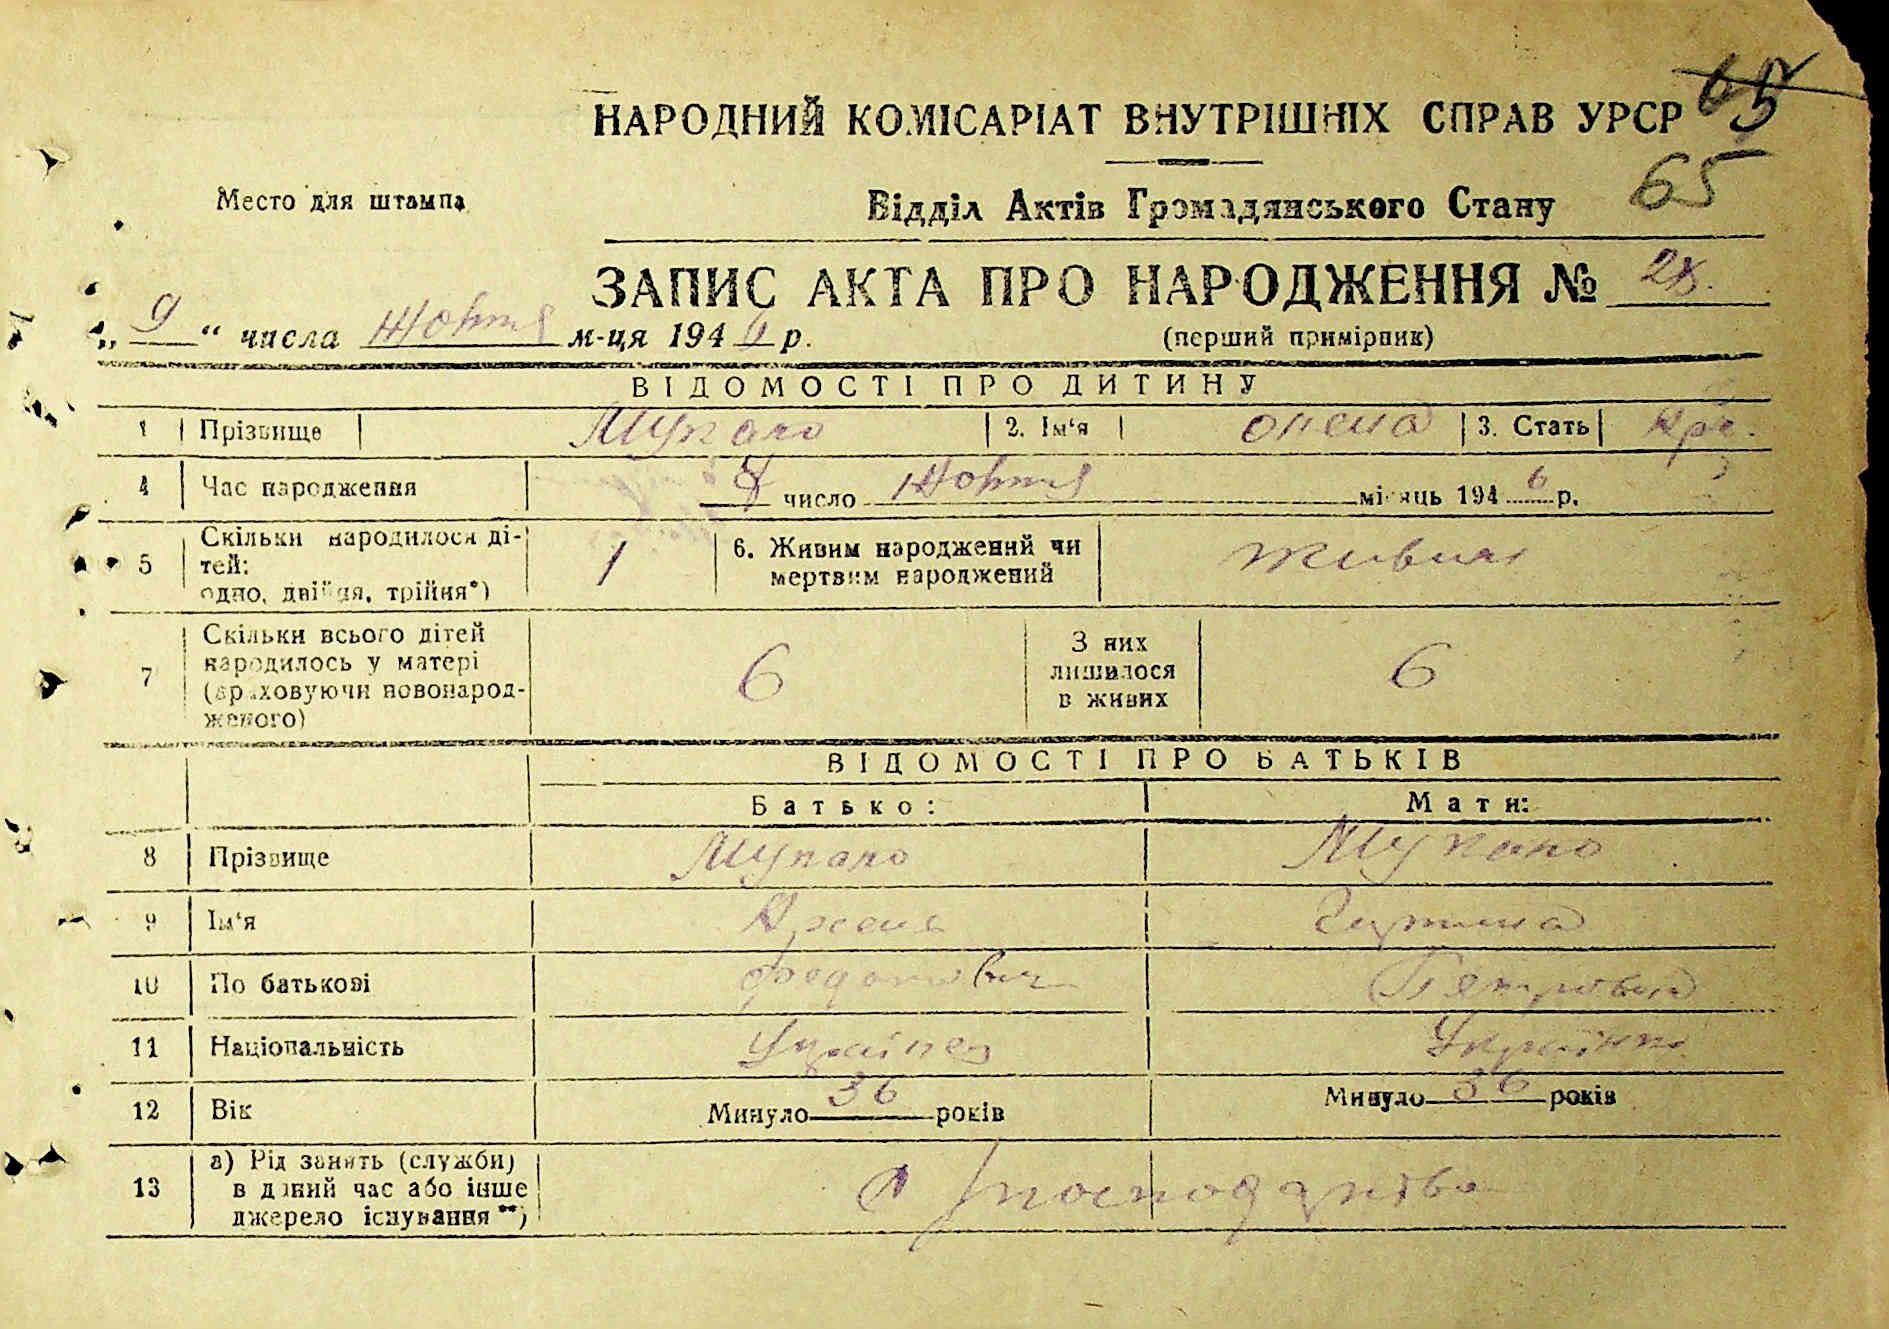 65
НАРОДНИЙ КОМІСАРІАТ ВНУТРІШНІХ СПРАВ УРСР
65
Место для штампа
Відділ Актів Громадянського Стану
ЗАПИС АКТА ПРО НАРОДЖЕННЯ № 28.
„ 9 “ числа Жовтня м-ця 1946 р.
(перший примірник)
ВІДОМОСТІ ПРО ДИТИНУ
1 Прізвище 2. Ім‘я 3. Стать
4 Час народження число Жовтня місяць 1946 р.
5 Скільки народилося ді-
тей:
одно, двійня, трійня*)
1
6. Живим народжений чи
мертвим народжений
живим
7 Скільки всього дітей
народилось у матері
(враховуючи новонарод-
женого)
6
З них
лишилося
в живих
6
ВІДОМОСТІ ПРО БАТЬКІВ
Батько: Мати:
8 Прізвище
9 Ім‘я
10 По батькові Федотович Петрівна
11 Національність Українец Українка
12 Вік Минуло 36 років Минуло 36 років
13 а) Рід занять (служби)
в даний час або інше
джерело існування**)
господарство